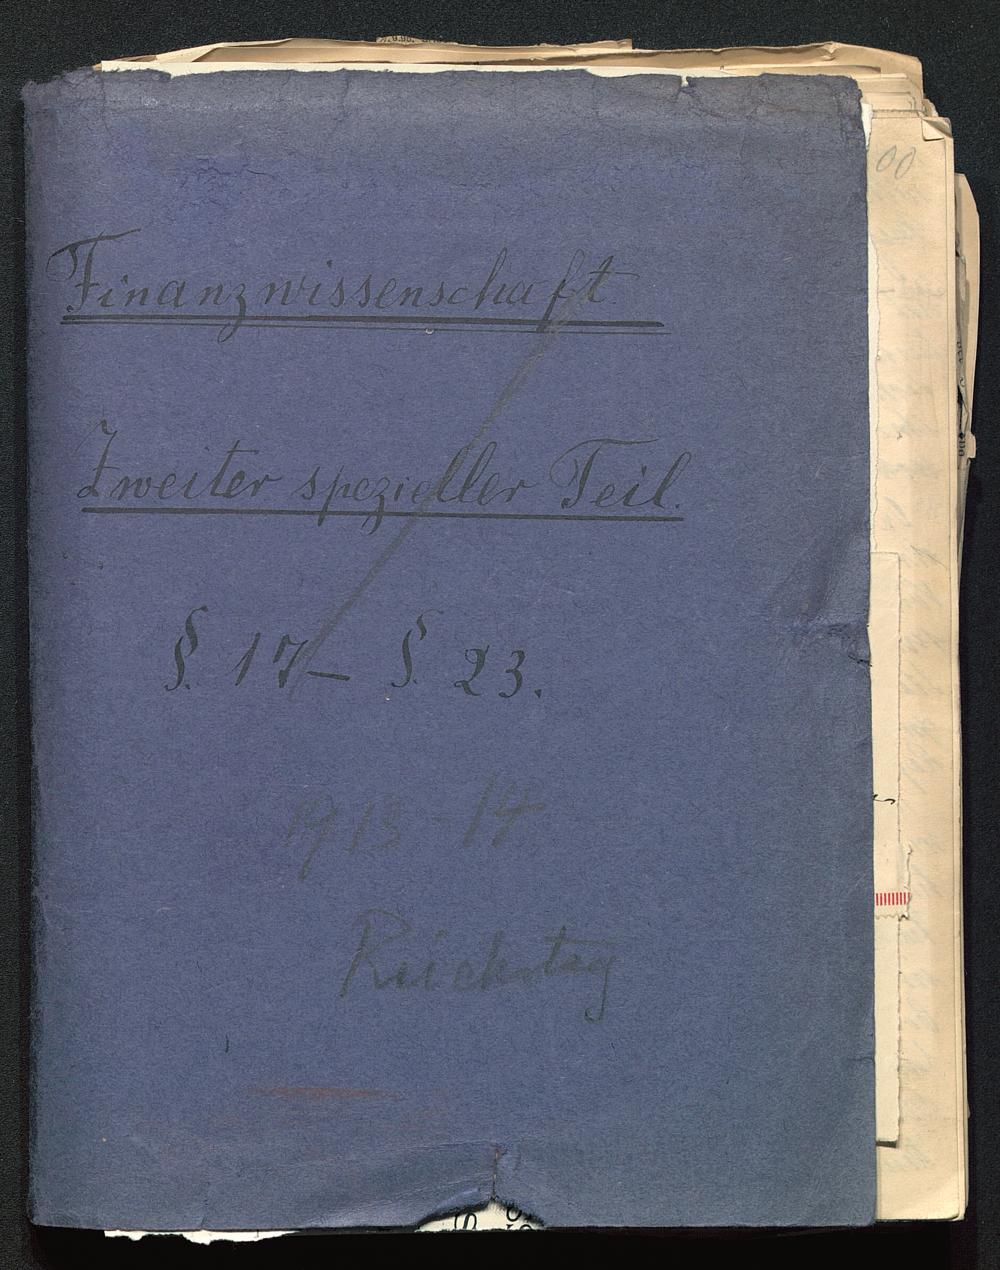 Finanzwissenschaft
Zweiter spezieller Teil.
§. 17 – §. 23.
1913-14
Reichstag
00